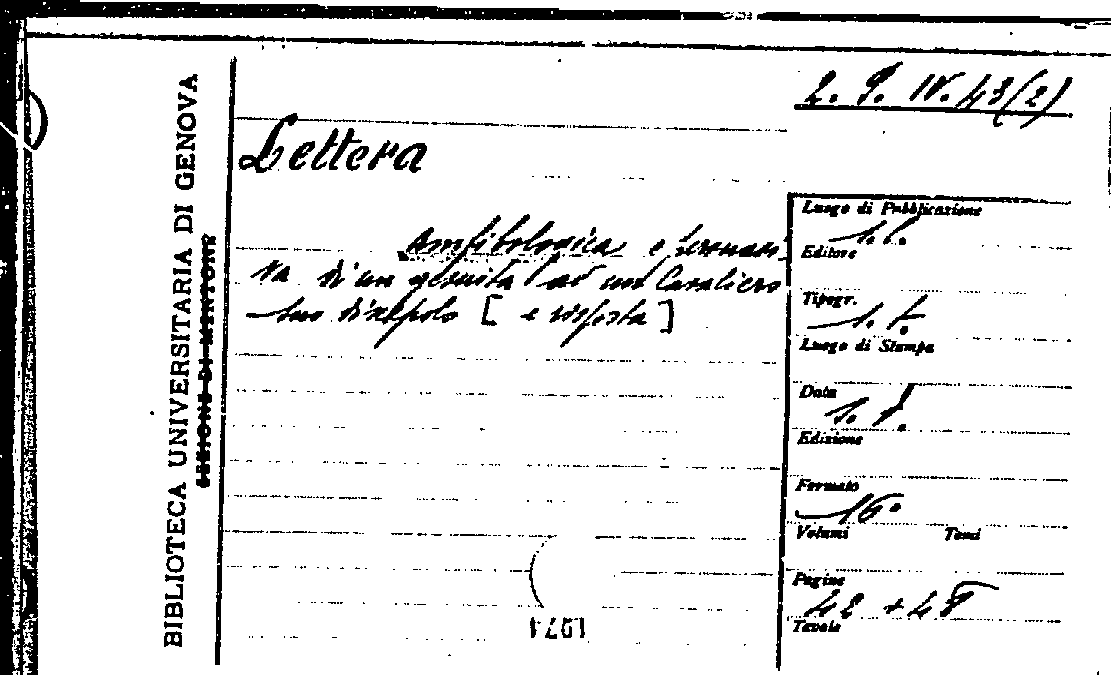 2. G. IV. 43(2)
BIBLIOTECA UNIVERSITARIA DI GENOVA
SEZIONE DI
Lettera
Amfibologica e
di un gesuita ad un Cavaliero
suo discepolo [ e risposta ]
Luogo di Pubblicazione
s.l.
Editore
Tipogr.
s. t.
Luogo di Stampa
Data
s. d.
Edizione
Formato
16°
Volumi Tomi
Pagine
42 + 48
Tavole
1974